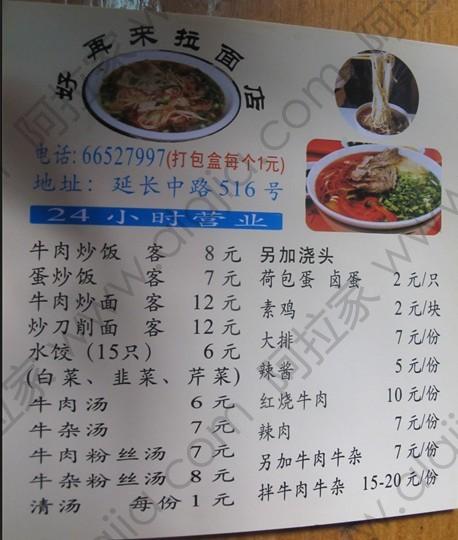 好再来拉面店
电话: 66527997(打包盒每个1元)
地址: 延长中路516号
24小时营业
牛肉炒饭 客 8元
蛋炒饭 客 7元
牛肉炒面 客 12元
炒刀削面 客 12元
水饺(15只) 6元
(白菜、韭菜、芹菜)
牛肉汤 6元
牛杂汤 7元
牛肉粉丝汤 7元
牛杂粉丝汤 8元
清汤 每份1元
另加浇头
荷包蛋 卤蛋 2元/只
素鸡 2元/块
大排 7元/份
辣酱 5元/份
红烧牛肉 10元/份
辣肉 7元/份
另加牛肉牛杂 7元/份
拌牛肉牛杂 15-20元/份
阿拉家 www.aqijia.com